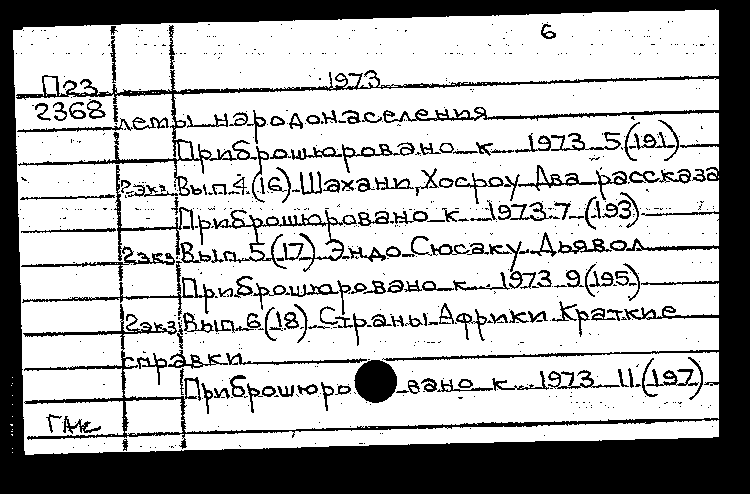 6
П23 1973
2368 лемы народонаселения
Приброшюровано к 1973 5(191)
2экз Вып.4.(16) Шахани, Хосроу Два рассказа
Приброшюровано к 1973.7 (193)
2экз Вып. 5(17) Эндо Сюсаку Дьявол
Приброшюровано к 1973 9(195)
2экз Вып. 6(18) Страны Африки Краткие
справки
Приброшюровано к 1973 11(197)